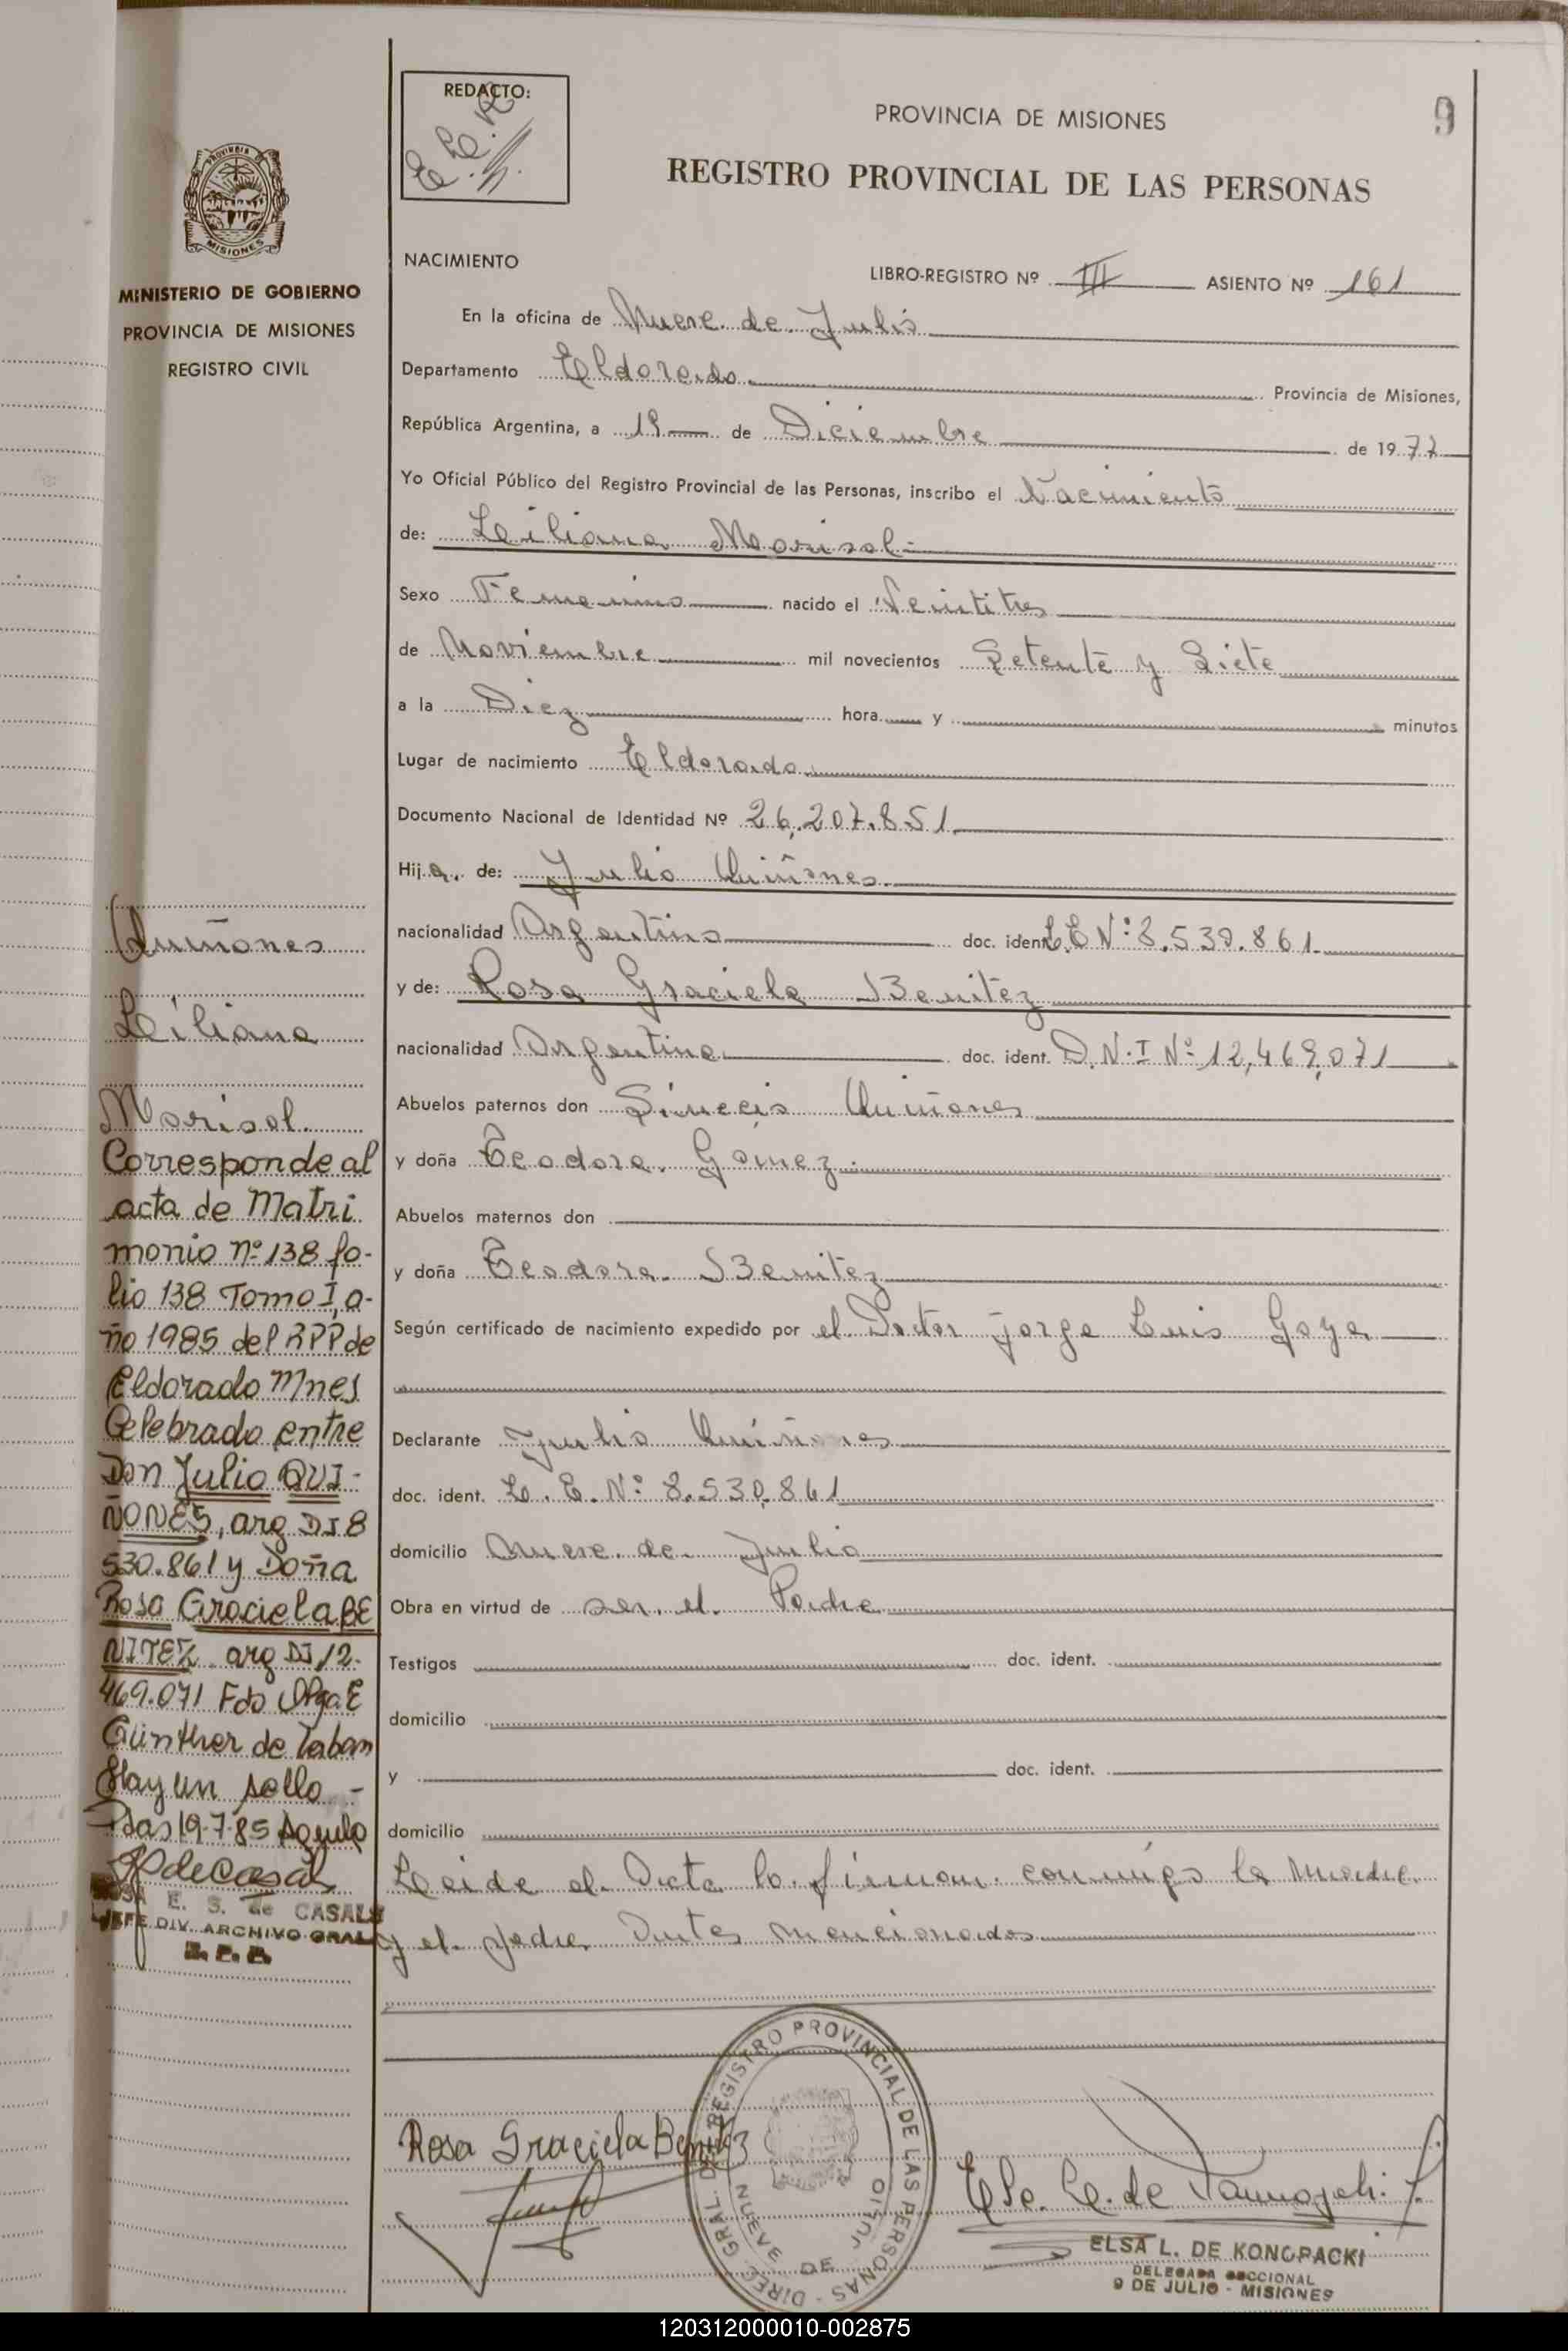 9
REDACTO:
PROVINCIA DE MISIONES
REGISTRO PROVINCIAL DE LAS PERSONAS
PROVINCIA DE
MISIONES
MINISTERIO DE GOBIERNO
PROVINCIA DE MISIONES
REGISTRO CIVIL
NACIMIENTO
LIBRO-REGISTRO Nº III ASIENTO Nº 161
En la oficina de Nueve de Julio
Departamento Eldorado Provincia de Misiones,
República Argentina, a 19 de Diciembre de 1977
Yo Oficial Público del Registro Provincial de las Personas, inscribo el Nacimiento
de: Liliana Marisol
Sexo Femenino nacido el Veintitres
de Noviembre mil novecientos Setenta y Siete
a la Diez hora y minutos
Lugar de nacimiento Eldorado
Documento Nacional de Identidad Nº 26.207.851
Hija de: Julio Quiñones
nacionalidad Argentino doc. ident. L.E Nº: 8.530.861
y de: Rosa Graciela Benitez
nacionalidad Argentina doc. ident. D.N.I Nº 12,469,071
Abuelos paternos don Quiñones
y doña Teodora Gomez
Abuelos maternos don
y doña Teodora Benitez
Según certificado de nacimiento expedido por el Doctor Jorge Luis Goya
Declarante Julio Quiñones
doc. ident. L.E. Nº: 8.530.861
domicilio Nueve de Julio
Obra en virtud de ser el Padre
Testigos doc. ident.
domicilio
y doc. ident.
domicilio
Leida el Acta la firman conmigo la Madre
y el padre Antes mencionados
Quiñones
Liliana
Marisol.
Corresponde al
acta de Matri
monio nº 138 fo-
lio 138 Tomo I, a-
ño 1985 del RPP de
Eldorado Mnes
Celebrado entre
Don Julio QUI-
ÑONES, arg DI 8
530.861 y Doña
Rosa Graciela BE
NITEZ arg DI 12.
469.071 Fdo Olga E
Günther de
Hay un sello -
Pdas 19-7-85
E. S. de CASALS
JEFE DIV. ARCHIVO GRAL
R. P. P.
Rosa Graciela Benitez
DIREC. GRAL. DEL REGISTRO PROVINCIAL DE LAS PERSONAS
NUEVE DE JULIO
ELSA L. DE KONOPACKI
DELEGADA SECCIONAL
9 DE JULIO - MISIONES
120312000010-002875